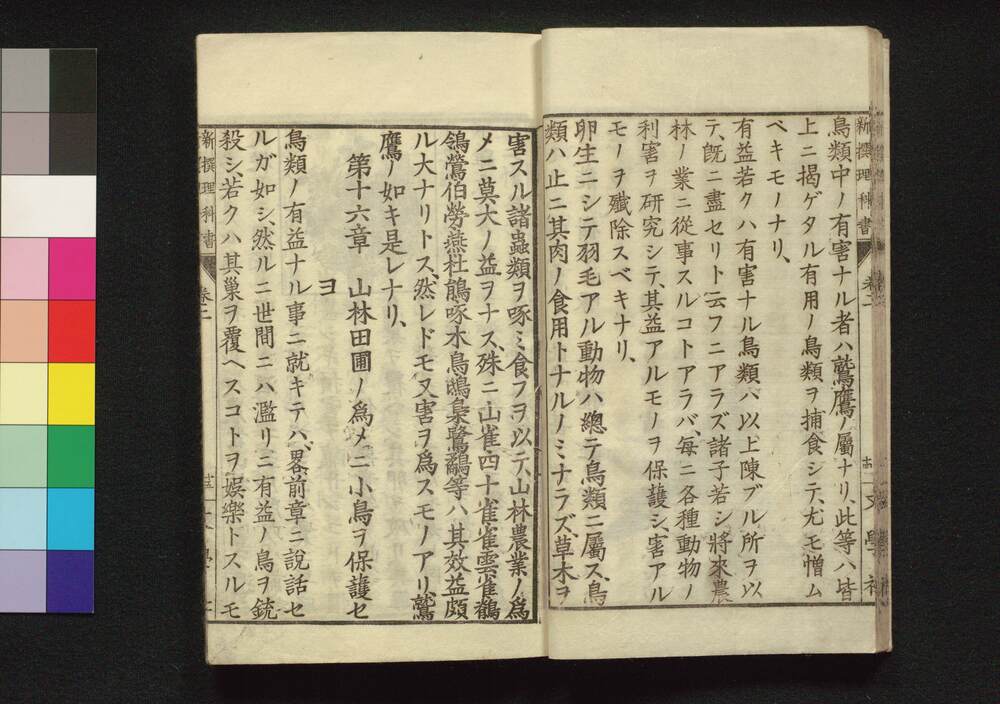 新撰理科書 卷二
文學社
鳥類中ノ有害ナル者ハ鷲鷹ノ屬ナリ、此等ハ皆
上ニ揭ゲタル有用ノ鳥類ヲ捕食シテ、尤モ憎ム
ベキモノナリ、
有益若クハ有害ナル鳥類ハ以上陳ブル所ヲ以
テ、旣ニ盡セリト云フニアラズ諸子若シ將來農
林ノ業ニ從事スルコトアラバ每ニ各種動物ノ
利害ヲ研究シテ、其益アルモノヲ保護シ、害アル
モノヲ殲除スベキナリ、
卵生ニシテ羽毛アル動物ハ總テ鳥類ニ屬ス、鳥
類ハ止ニ其肉ノ食用トナルノミナラズ、草木ヲ
害スル諸蟲類ヲ啄ミ食フヲ以テ、山林農業ノ爲
メニ莫大ノ益ヲナス、殊ニ山雀四十雀雀雲雀鶺
鴒鶯伯勞燕杜鵑啄木鳥鴟梟鷺鷸等ハ其效益頗
ル大ナリトス、然レドモ又害ヲ爲スモノアリ、鷲
鷹ノ如キ是レナリ、
第十六章 山林田圃ノ爲メニ小鳥ヲ保護セ
ヨ
鳥類ノ有益ナル事ニ就キテハ、畧前章ニ說話セ
ルガ如シ、然ルニ世間ニハ濫リニ有益ノ鳥ヲ銃
殺シ、若クハ其巢ヲ覆ヘスコトヲ娛樂トスルモ
新撰理科書 卷二